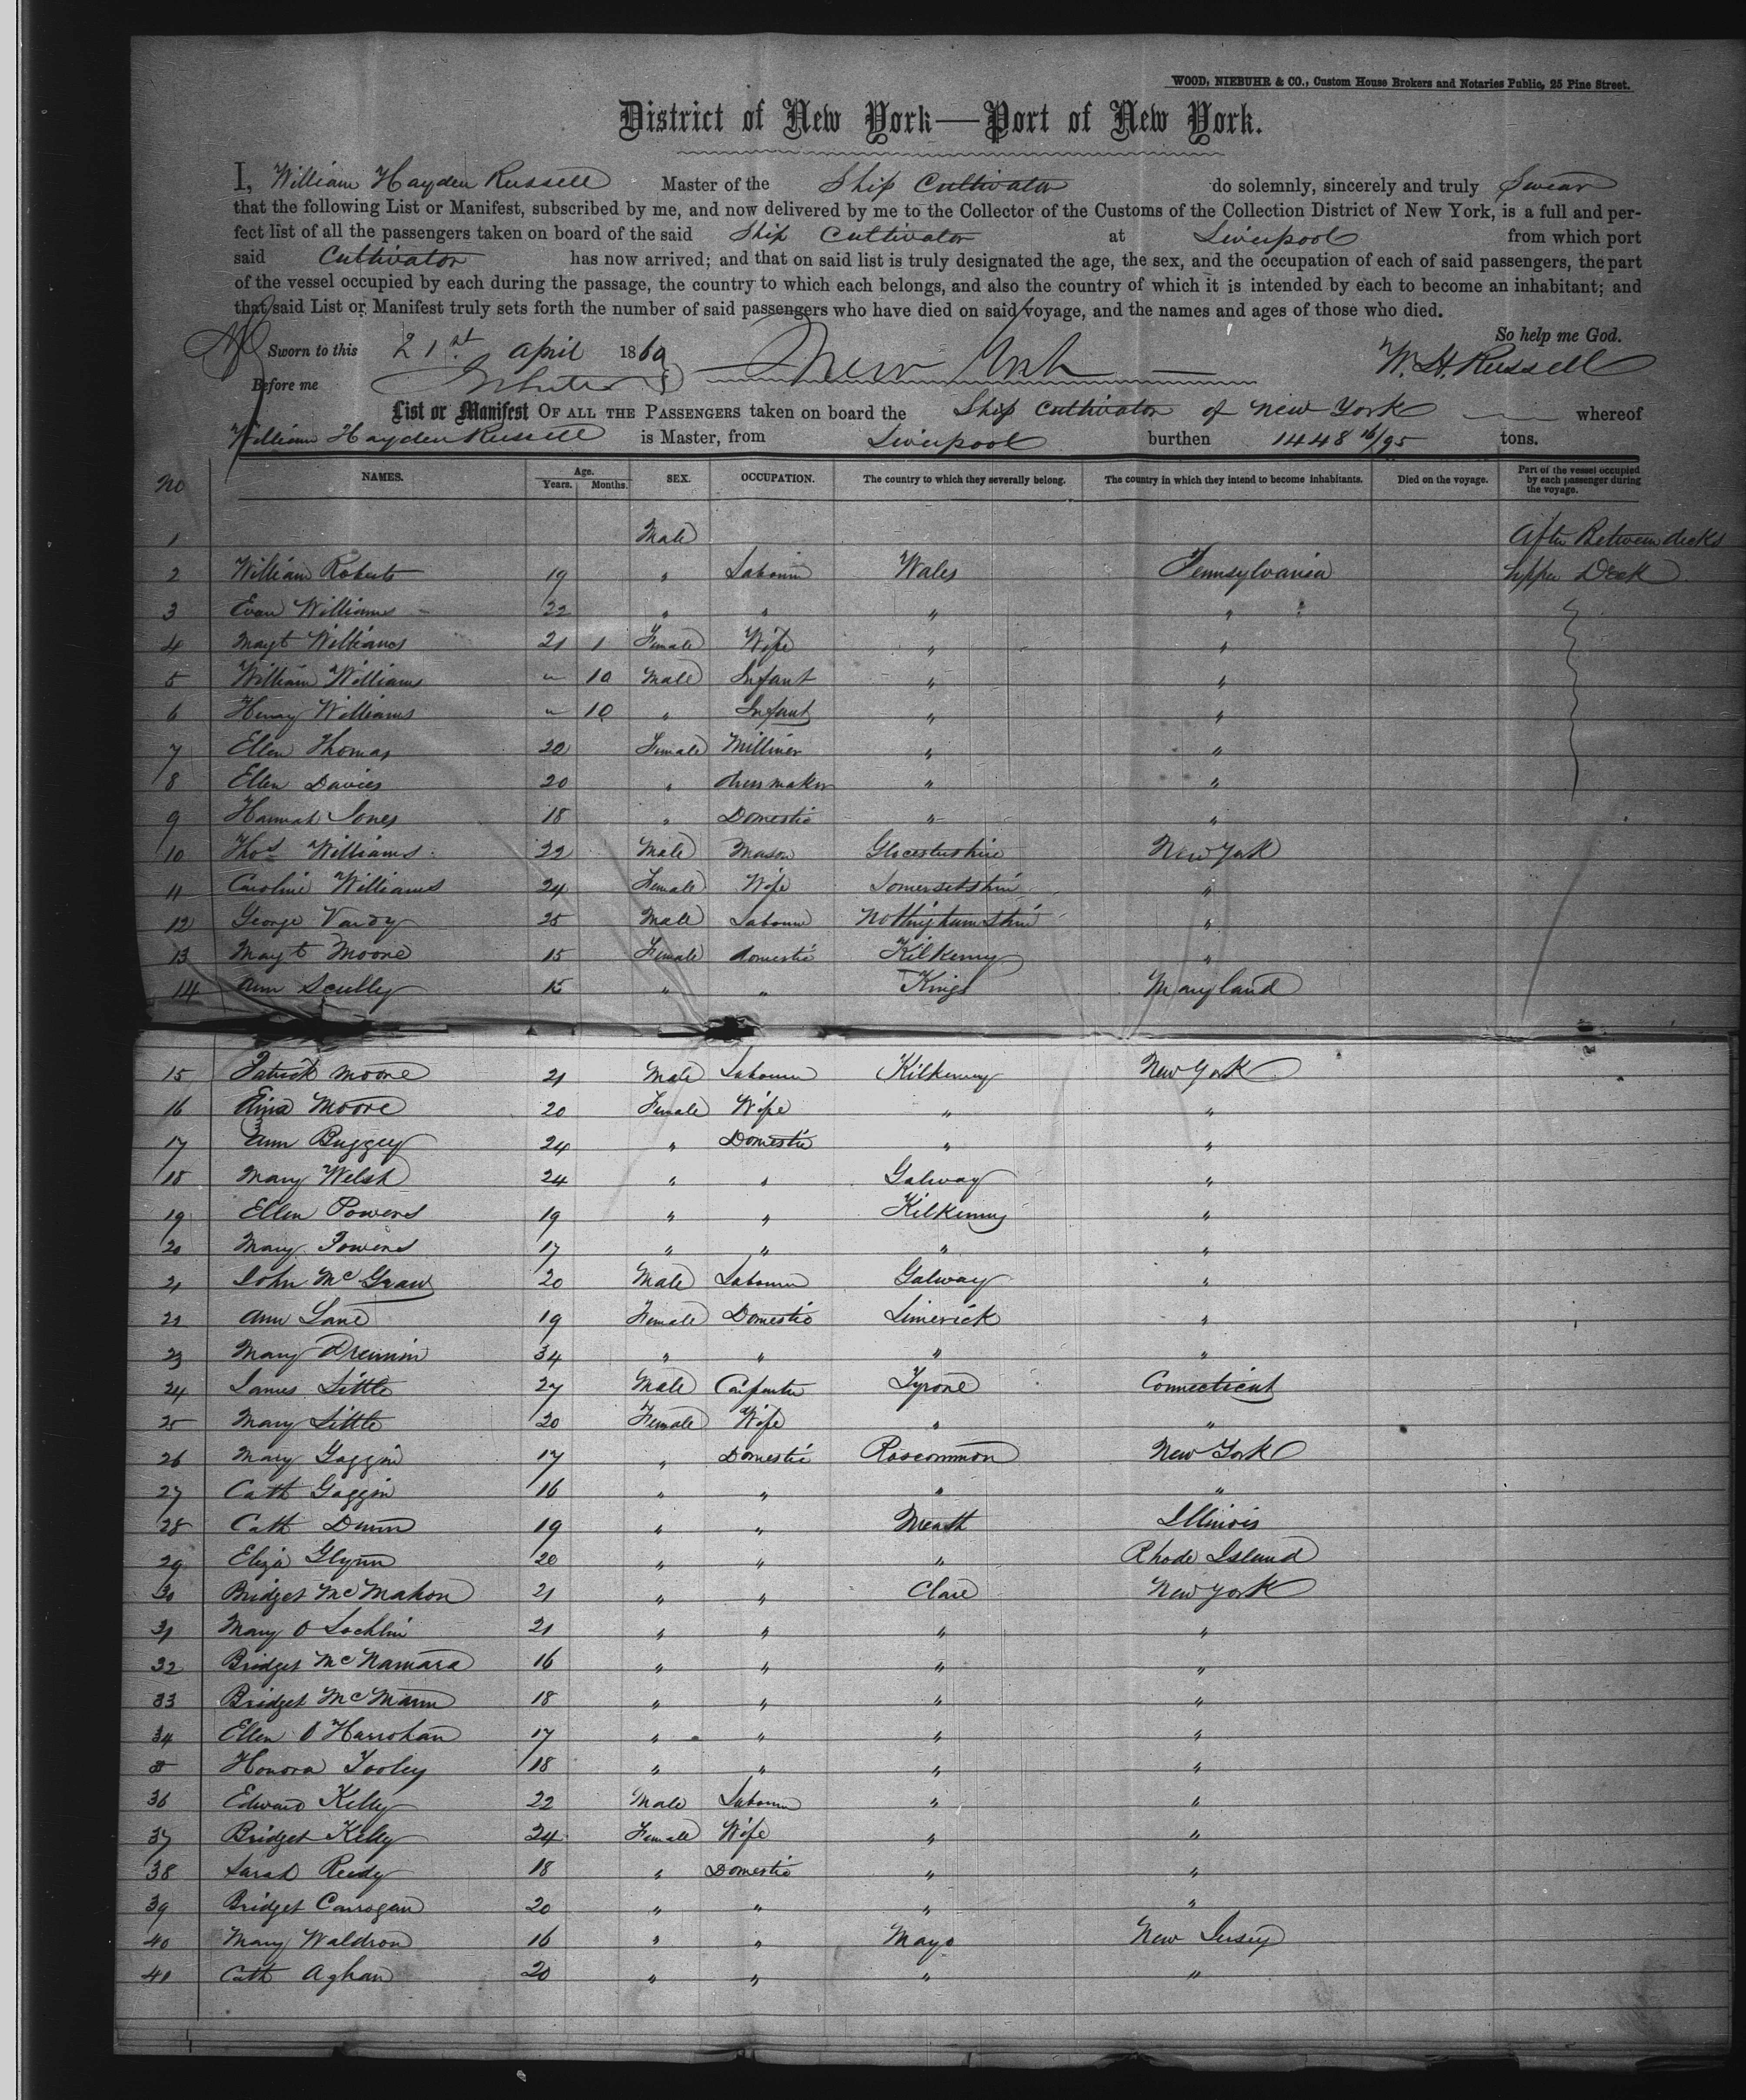 WOOD, NIEBUHR & CO., Custom House Brokers and Notaries Public, 25 Pine Street.
District of New York—Port of New York.
I, William Hayden Russell Master of the Ship Cultivator do solemnly, sincerely and truly Swear
that the following List or Manifest, subscribed by me, and now delivered by me to the Collector of the Customs of the Collection District of New York, is a full and per-
fect list of all the passengers taken on board of the said Ship Cultivator at Liverpool from which port
said Cultivator has now arrived; and that on said list is truly designated the age, the sex, and the occupation of each of said passengers, the part
of the vessel occupied by each during the passage, the country to which each belongs, and also the country of which it is intended by each to become an inhabitant; and
that said List or Manifest truly sets forth the number of said passengers who have died on said voyage, and the names and ages of those who died.
So help me God.
Sworn to this 21st April 1869 New York W. H. Russell
Before me
List or Manifest OF ALL THE PASSENGERS taken on board the Ship Cultivator of New York whereof
William Hayden Russell is Master, from Liverpool burthen 1448 16/95 tons.
No NAMES. Age. Years. Months. SEX. OCCUPATION. The country to which they severally belong. The country in which they intend to become inhabitants. Died on the voyage. Part of the vessel occupied by each passenger during the voyage.
1 Male After Between decks
2 William Roberts 19 " Labourer Wales Pennsylvania Upper Deck
3 Evan Williams 22 " " " "
4 Magt Williams 21 1 Female Wife " "
5 William Williams " 10 Male Infant " "
6 Henry Williams " 10 " Infant " "
7 Ellen Thomas 20 Female Milliner " "
8 Ellen Davies 20 " dressmaker " "
9 Hannah Jones 18 " Domestic " "
10 Thos Williams 22 Male Mason Glocestershire New York
11 Caroline Williams 24 Female Wife Somersetshire "
12 George Vardy 25 Male Labourer Nottinghamshire "
13 Magt Moore 15 Female domestic Kilkenny "
14 Ann Scully 15 " " Kings Maryland
15 Patrick Moore 21 Male Labourer Kilkenny New York
16 Moore 20 Female Wife " "
17 Ann Buggey 24 " Domestic " "
18 Mary Welsh 24 " " Galway "
19 Ellen Powers 19 " " Kilkenny "
20 Mary Powers 17 " " " "
21 John McGraw 20 Male Labourer Galway "
22 Ann Lane 19 Female Domestic Limerick "
23 Mary 34 " " " "
24 James Little 27 Male Carpenter Tyrone Connecticut
25 Mary Little 20 Female Wife " "
26 Mary Gaggin 17 " Domestic Roscommon New York
27 Cath Gaggin 16 " " " "
28 Cath Dunn 19 " " Meath Illinois
29 Eliza Glynn 20 " " " Rhode Island
30 Bridget McMahon 21 " " Clare New York
31 Mary O Lochlin 21 " " " "
32 Bridget McNamara 16 " " " "
33 Bridget McMann 18 " " " "
34 Ellen O Hanrohan 17 " " " "
Honora Tooley 18 " " " "
36 Edward Kelly 22 Male Labourer " "
37 Bridget Kelly 24 Female Wife " "
38 Sarah Reedy 18 " Domestic " "
39 Bridget Corrogan 20 " " " "
40 Mary Waldron 16 " " Mayo New Jersey
41 Cath Aghan 20 " " " "